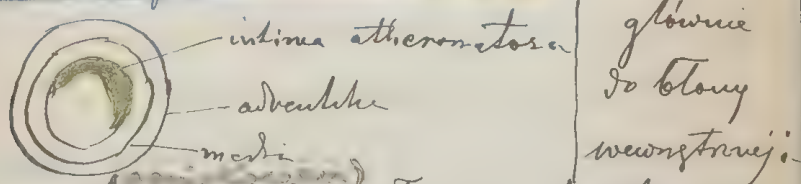 intima atheromatosa
adventitia
media
głównie
do błony
wewnętrznej: